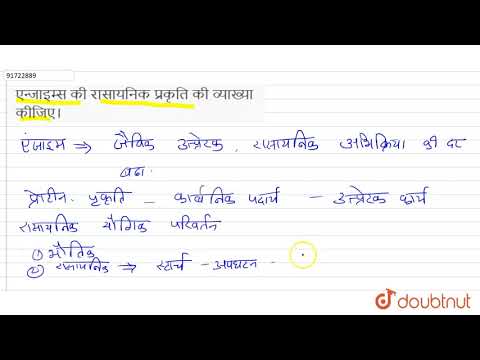 91722889
एन्जाइम्स की रासायनिक प्रकृति की व्याख्या
कीजिए।
एंजाइम ⇒ जैविक उत्प्रेरक, रासायनिक अभिक्रिया की दर
बढा
प्रोटीन प्रकृति – कार्बनिक पदार्थ – उत्प्रेरक कार्य
रासायनिक यौगिक परिवर्तन
① भौतिक
② रासायनिक ⇒ स्टार्च – अपघटन -
doubtnut